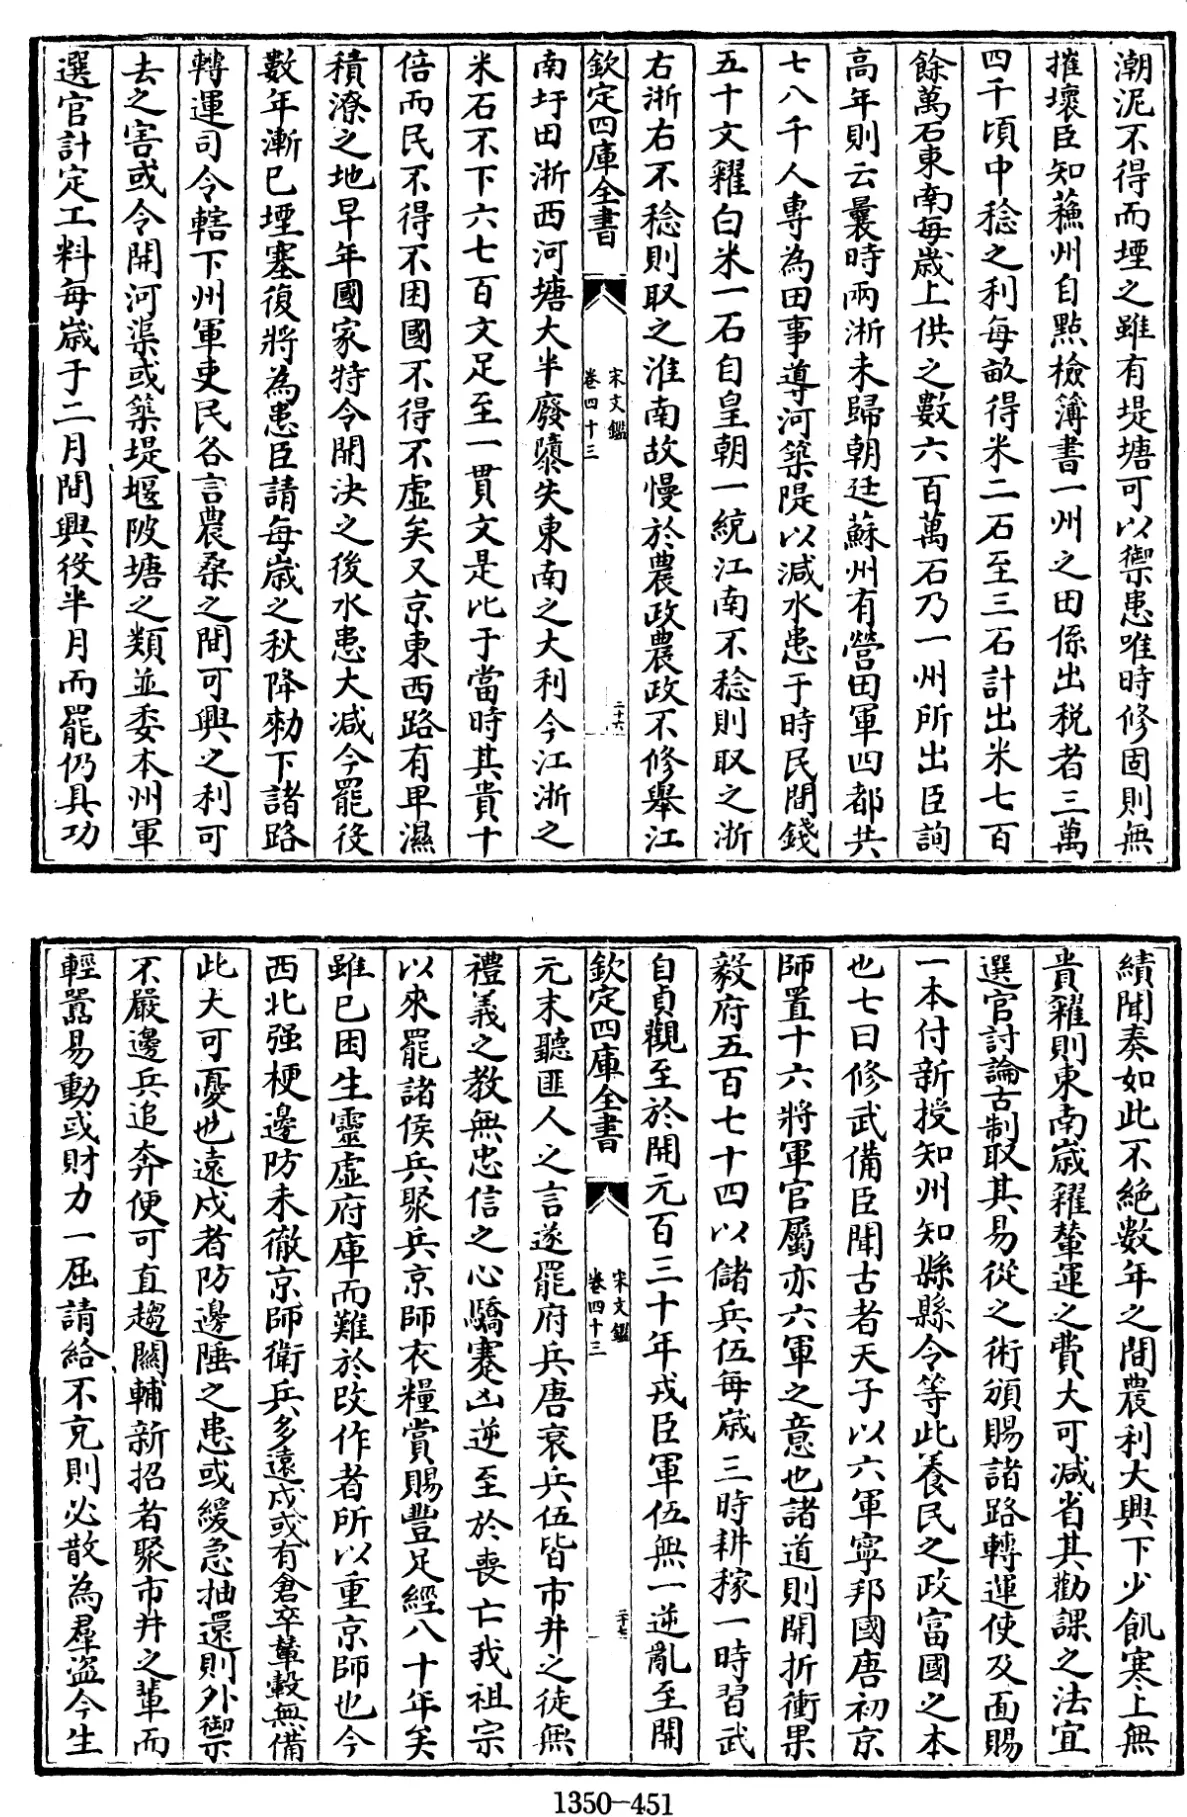 潮泥不得而堙之雖有堤塘可以禦患唯時修固則無
摧壞臣知蘓州自點檢簿書一州之田係出税者三萬
四千頃中稔之利每畝得米二石至三石計出米七百
餘萬石東南每歲上供之數六百萬石乃一州所出臣詢
高年則云曩時兩浙未歸朝廷蘇州有營田軍四都共
七八千人專為田事導河築隄以減水患于時民間錢
五十文糴白米一石自皇朝一統江南不稔則取之浙
右浙右不稔則取之淮南故慢於農政農政不修舉江
欽定四庫全書
宋文鑑
卷四十三
二十六
南圩田浙西河塘大半廢隳失東南之大利今江浙之
米石不下六七百文足至一貫文是比于當時其貴十
倍而民不得不困國不得不虛矣又京東西路有卑濕
積潦之地早年國家特令開決之後水患大減今罷役
數年漸已堙塞復將為患臣請每歲之秋降勑下諸路
轉運司令轄下州軍吏民各言農桑之間可興之利可
去之害或令開河渠或築堤堰陂塘之類並委本州軍
選官計定工料每歲于二月間興役半月而罷仍具功
績聞奏如此不絶數年之間農利大興下少飢寒上無
貴糴則東南歲糴輦運之費大可減省其勸課之法宜
選官討論古制取其易從之術頒賜諸路轉運使及面賜
一本付新授知州知縣縣令等此養民之政富國之本
也七曰修武備臣聞古者天子以六軍寧邦國唐初京
師置十六將軍官屬亦六軍之意也諸道則開折衝果
毅府五百七十四以儲兵伍每歲三時耕稼一時習武
自貞觀至於開元百三十年戎臣軍伍無一逆亂至開
欽定四庫全書
宋文鑑
卷四十三
二十七
元末聽匪人之言遂罷府兵唐衰兵伍皆市井之徒無
禮義之教無忠信之心驕蹇凶逆至於喪亡我祖宗
以來罷諸侯兵聚兵京師衣糧賞賜豐足經八十年矣
雖已困生靈虛府庫而難於改作者所以重京師也今
西北强梗邊防未徹京師衛兵多遠戍或有倉卒輦轂無備
此大可憂也遠戍者防邊陲之患或緩急抽還則外禦
不嚴邊兵追奔便可直趨關輔新招者聚市井之輩而
輕嚣易動或財力一屈請給不充則必散為羣盗今生
1350-451